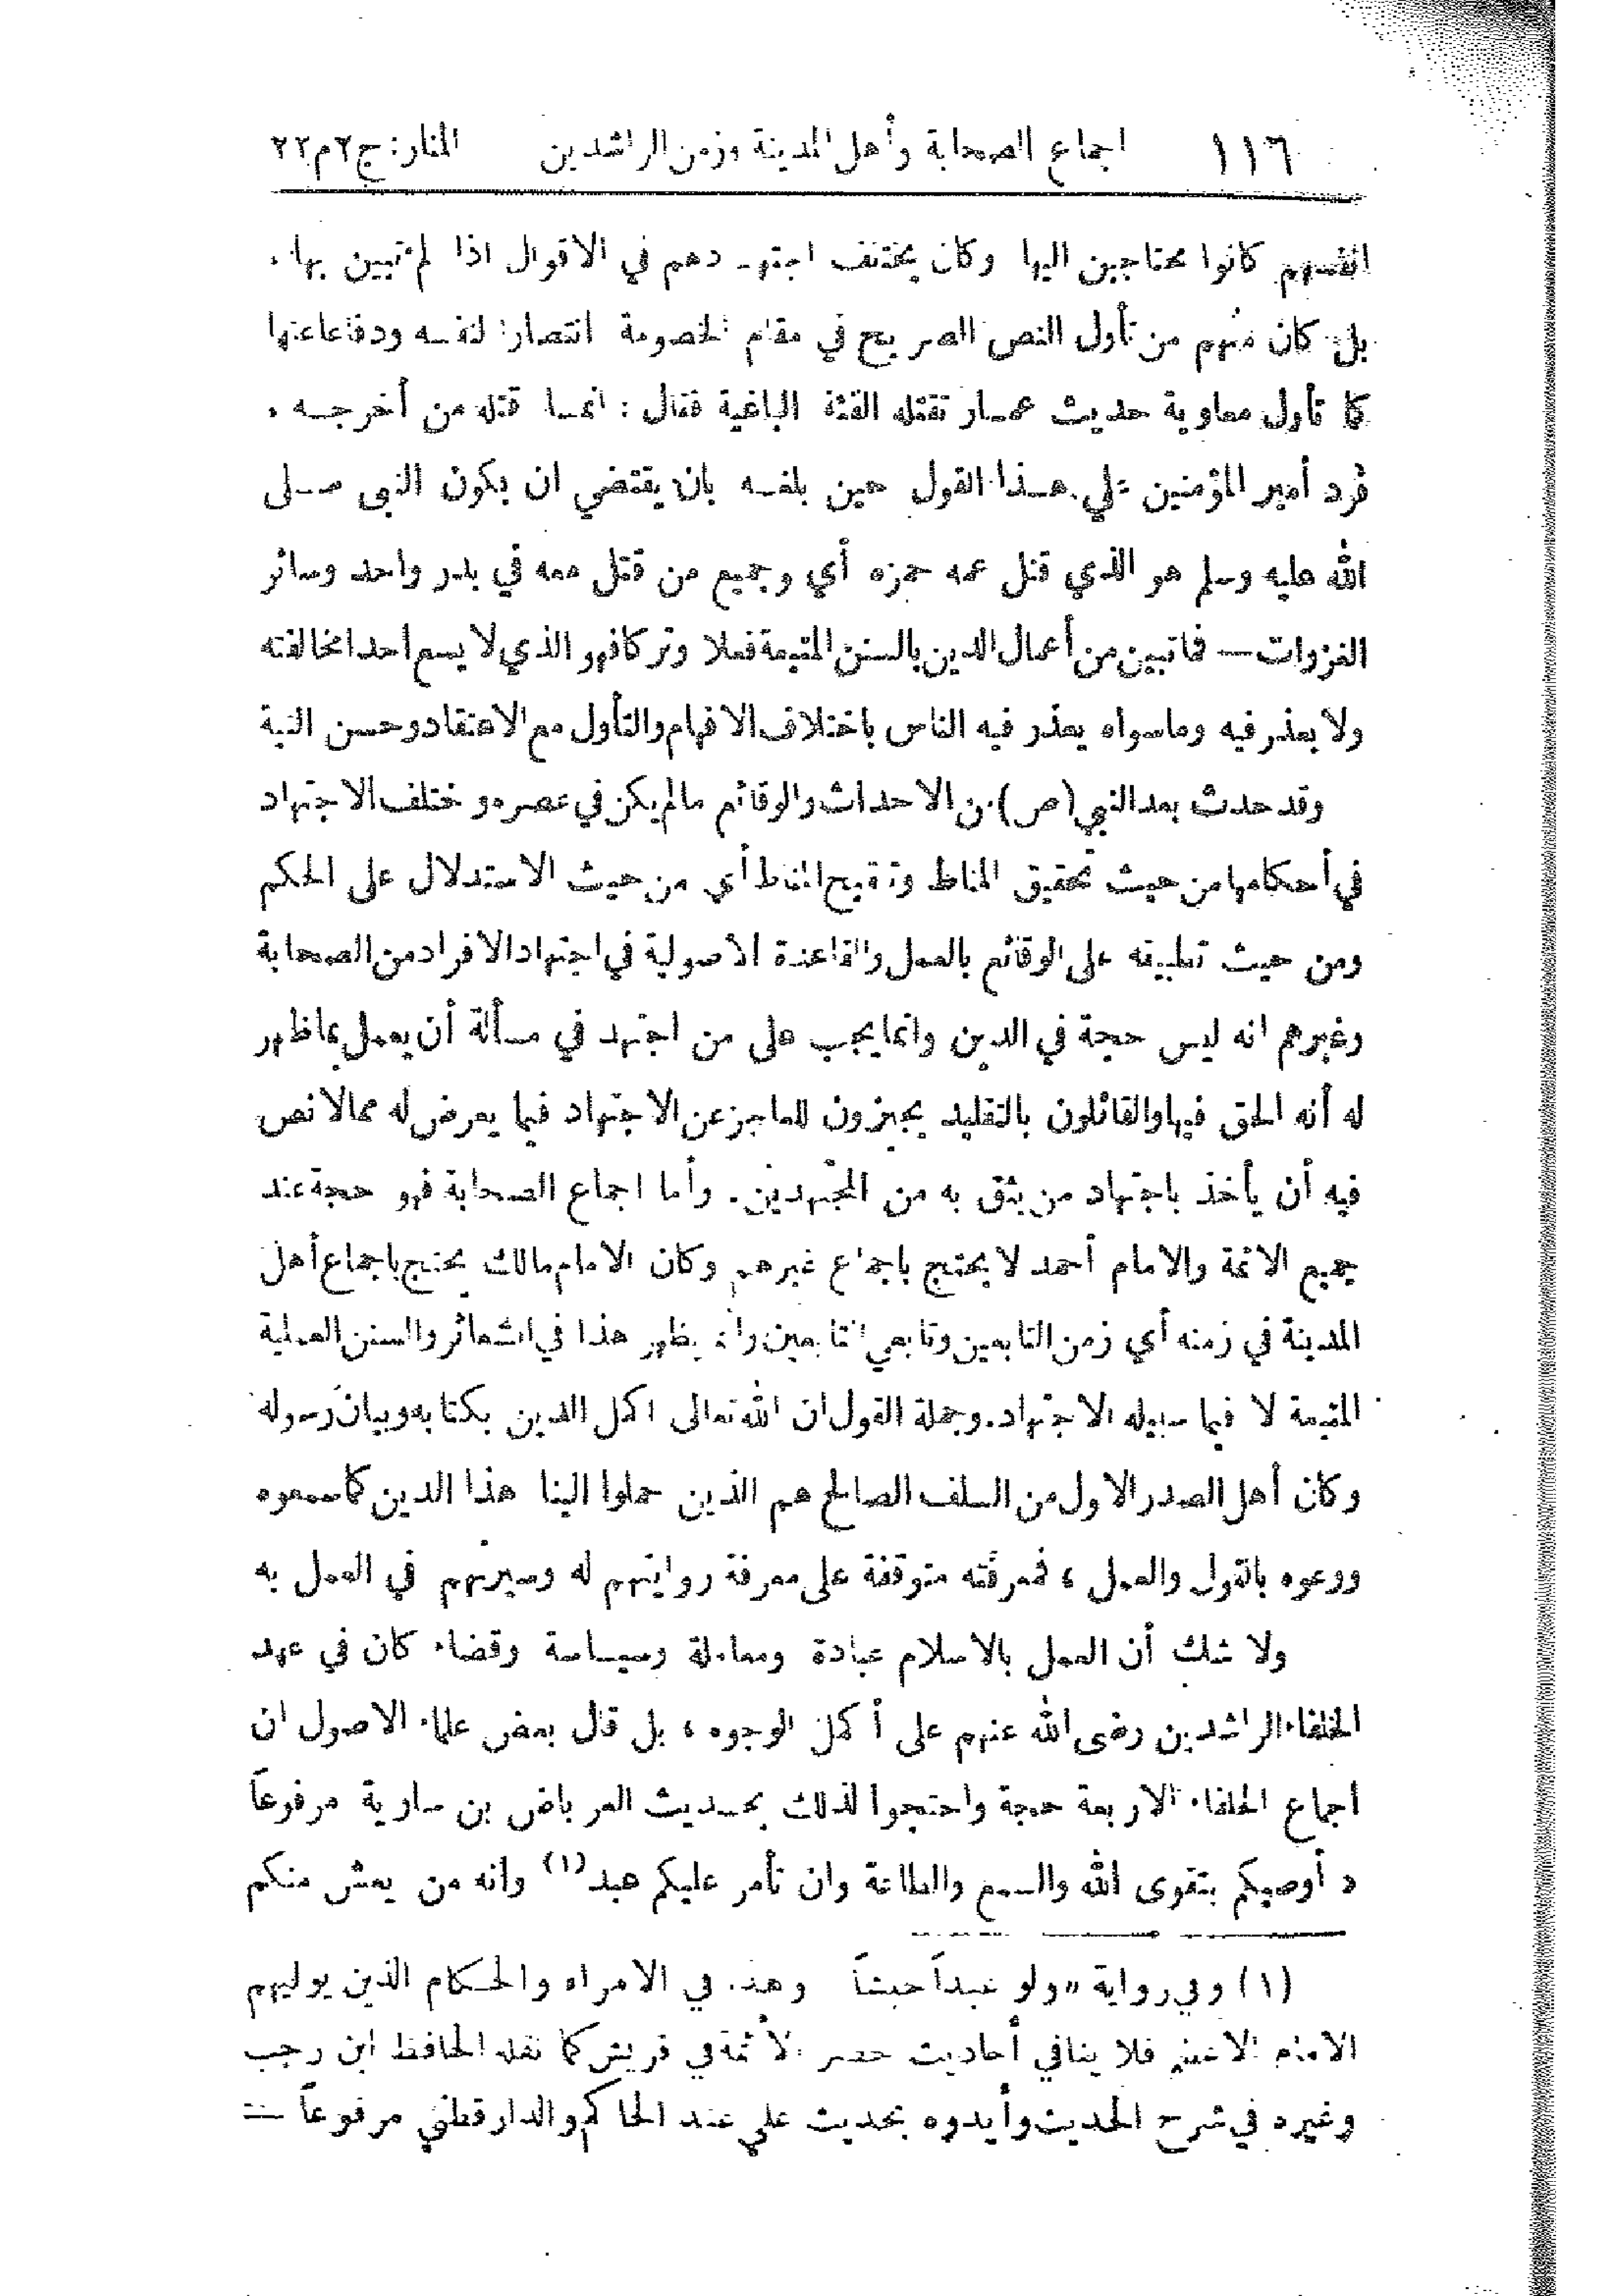 ١١٦ اجماع الصحابة وأهل المدينة وزمن الراشدين المنار: ج٢م٢٢
انفسهم كانوا محتاجين اليها وكان يختلف اجتهادهم في الاقوال اذا لم تبين بها .
بل كان منهم من تأول النص الصريح في مقام الخصومة انتصارا لنفسه ودفاعا عنها
كما تأول معاوية حديث عمار تقتله الفئة الباغية فقال : انما قتله من أخرجه .
فرد أمير المؤمنين علي هذا القول حين بلغه بان يقتضي ان يكون النبي صلى
الله عليه وسلم هو الذي قتل عمه حمزه أي وجميع من قتل معه في بدر واحد وسائر
الغزوات — فما تبين من أعمال الدين بالسنن المتبعة فعلا وتركا فهو الذي لا يسع احدا مخالفته
ولا يعذر فيه وما سواه يعذر فيه الناس باختلاف الافهام والتأول مع الاعتقاد وحسن النية
وقد حدث بعد النبي (ص) من الاحداث والوقائع مالم يكن في عصره واختلف الاجتهاد
في أحكامها من حيث تحقيق المناط وتنقيح المناط أي من حيث الاستدلال على الحكم
ومن حيث تطبيقه على الوقائع بالعمل والقاعدة الاصولية في اجتهاد الافراد من الصحابة
وغيرهم انه ليس حجة في الدين وانما يجب على من اجتهد في مسألة أن يعمل بما ظهر
له أنه الحق فيها والقائلون بالتقليد يجيزون للعاجز عن الاجتهاد فيما يعرض له ممالا نص
فيه أن يأخذ باجتهاد من يثق به من المجتهدين . وأما اجماع الصحابة فهو حجة عند
جميع الائمة والامام أحمد لا يحتج باجماع غيرهم وكان الامام مالك يحتج باجماع أهل
المدينة في زمنه أي زمن التابعين وتابعي التابعين وانما يظهر هذا في الشعائر والسنن العملية
المتبعة لا فيما سبيله الاجتهاد . وجملة القول ان الله تعالى اكمل الدين بكتابه وبيان رسوله
وكان أهل الصدر الاول من السلف الصالح هم الذين حملوا الينا هذا الدين كما سمعوه
ووعوه بالقول والعمل ، فمعرفته متوقفة على معرفة روايتهم له وسيرتهم في العمل به
ولا شك أن العمل بالاسلام عبادة ومعاملة وسياسة وقضاء كان في عهد
الخلفاء الراشدين رضى الله عنهم على أكمل الوجوه ، بل قال بعض علماء الاصول ان
اجماع الخلفاء الاربعة حجة واحتجوا لذلك بحديث العرباض بن سارية مرفوعاً
« أوصيكم بتقوى الله والسمع والطاعة وان تأمر عليكم عبد (١) وانه من يعش منكم
(١) وفي رواية « ولو عبداً حبشاً وهذا في الامراء والحكام الذين يوليهم
الامام الاعظم فلا ينافي أحاديث حصر الأئمة في قريش كما نقله الحافظ ابن رجب
وغيره في شرح الحديث وأيدوه بحديث علي عند الحاكم والدارقطني مرفوعاً =